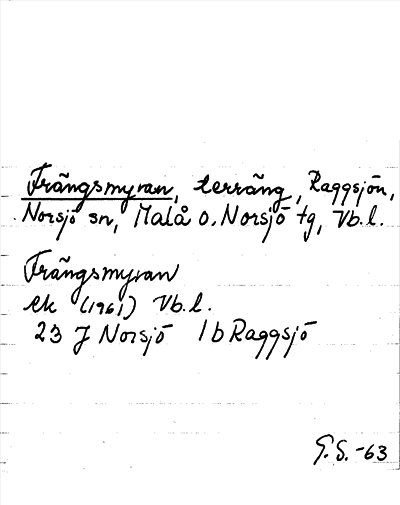 Trångsmyran, terräng, Raggsjön,
Norsjö sn, Malå o. Norsjö tg, Vb.l.
Trångsmyran
ek (1961) Vb.l.
23 J Norsjö 1b Raggsjö
G.S. -63